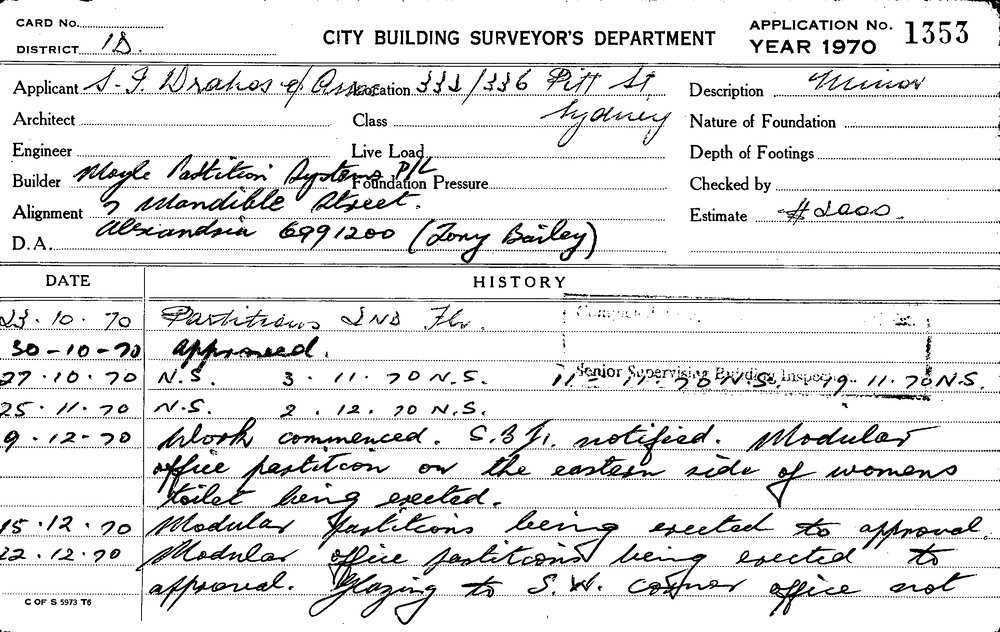 CARD No.
DISTRICT 1D.
CITY BUILDING SURVEYOR'S DEPARTMENT
APPLICATION No. 1353
YEAR 1970
Applicant S. I. Drakos & Assoc
Location 332/336 Pitt St
Sydney
Description Minor
Architect
Class
Nature of Foundation
Engineer
Live Load
Depth of Footings
Builder Moyle Partition Systems P/L
Foundation Pressure
Checked by
Alignment 7 Mandible Street.
Estimate $2000.
D.A. Alexandria 6991200 (Tony Bailey)
DATE HISTORY
23.10.70 Partitions 2ND Flr.
30-10-70 approved.
Senior Supervising Building Inspec
27.10.70 N.S. 3.11.70 N.S. 11-11-70 N.S. 19.11.70 N.S.
25.11.70 N.S. 2.12.70 N.S.
9.12.70 Work commenced. S.B.I. notified. Modular
office partition on the eastern side of womens
toilet being erected.
15.12.70 Modular partitions being erected to approval.
22.12.70 Modular office partitions being erected to
approval. Glazing to S.W. corner office not
C OF S 5973 T6